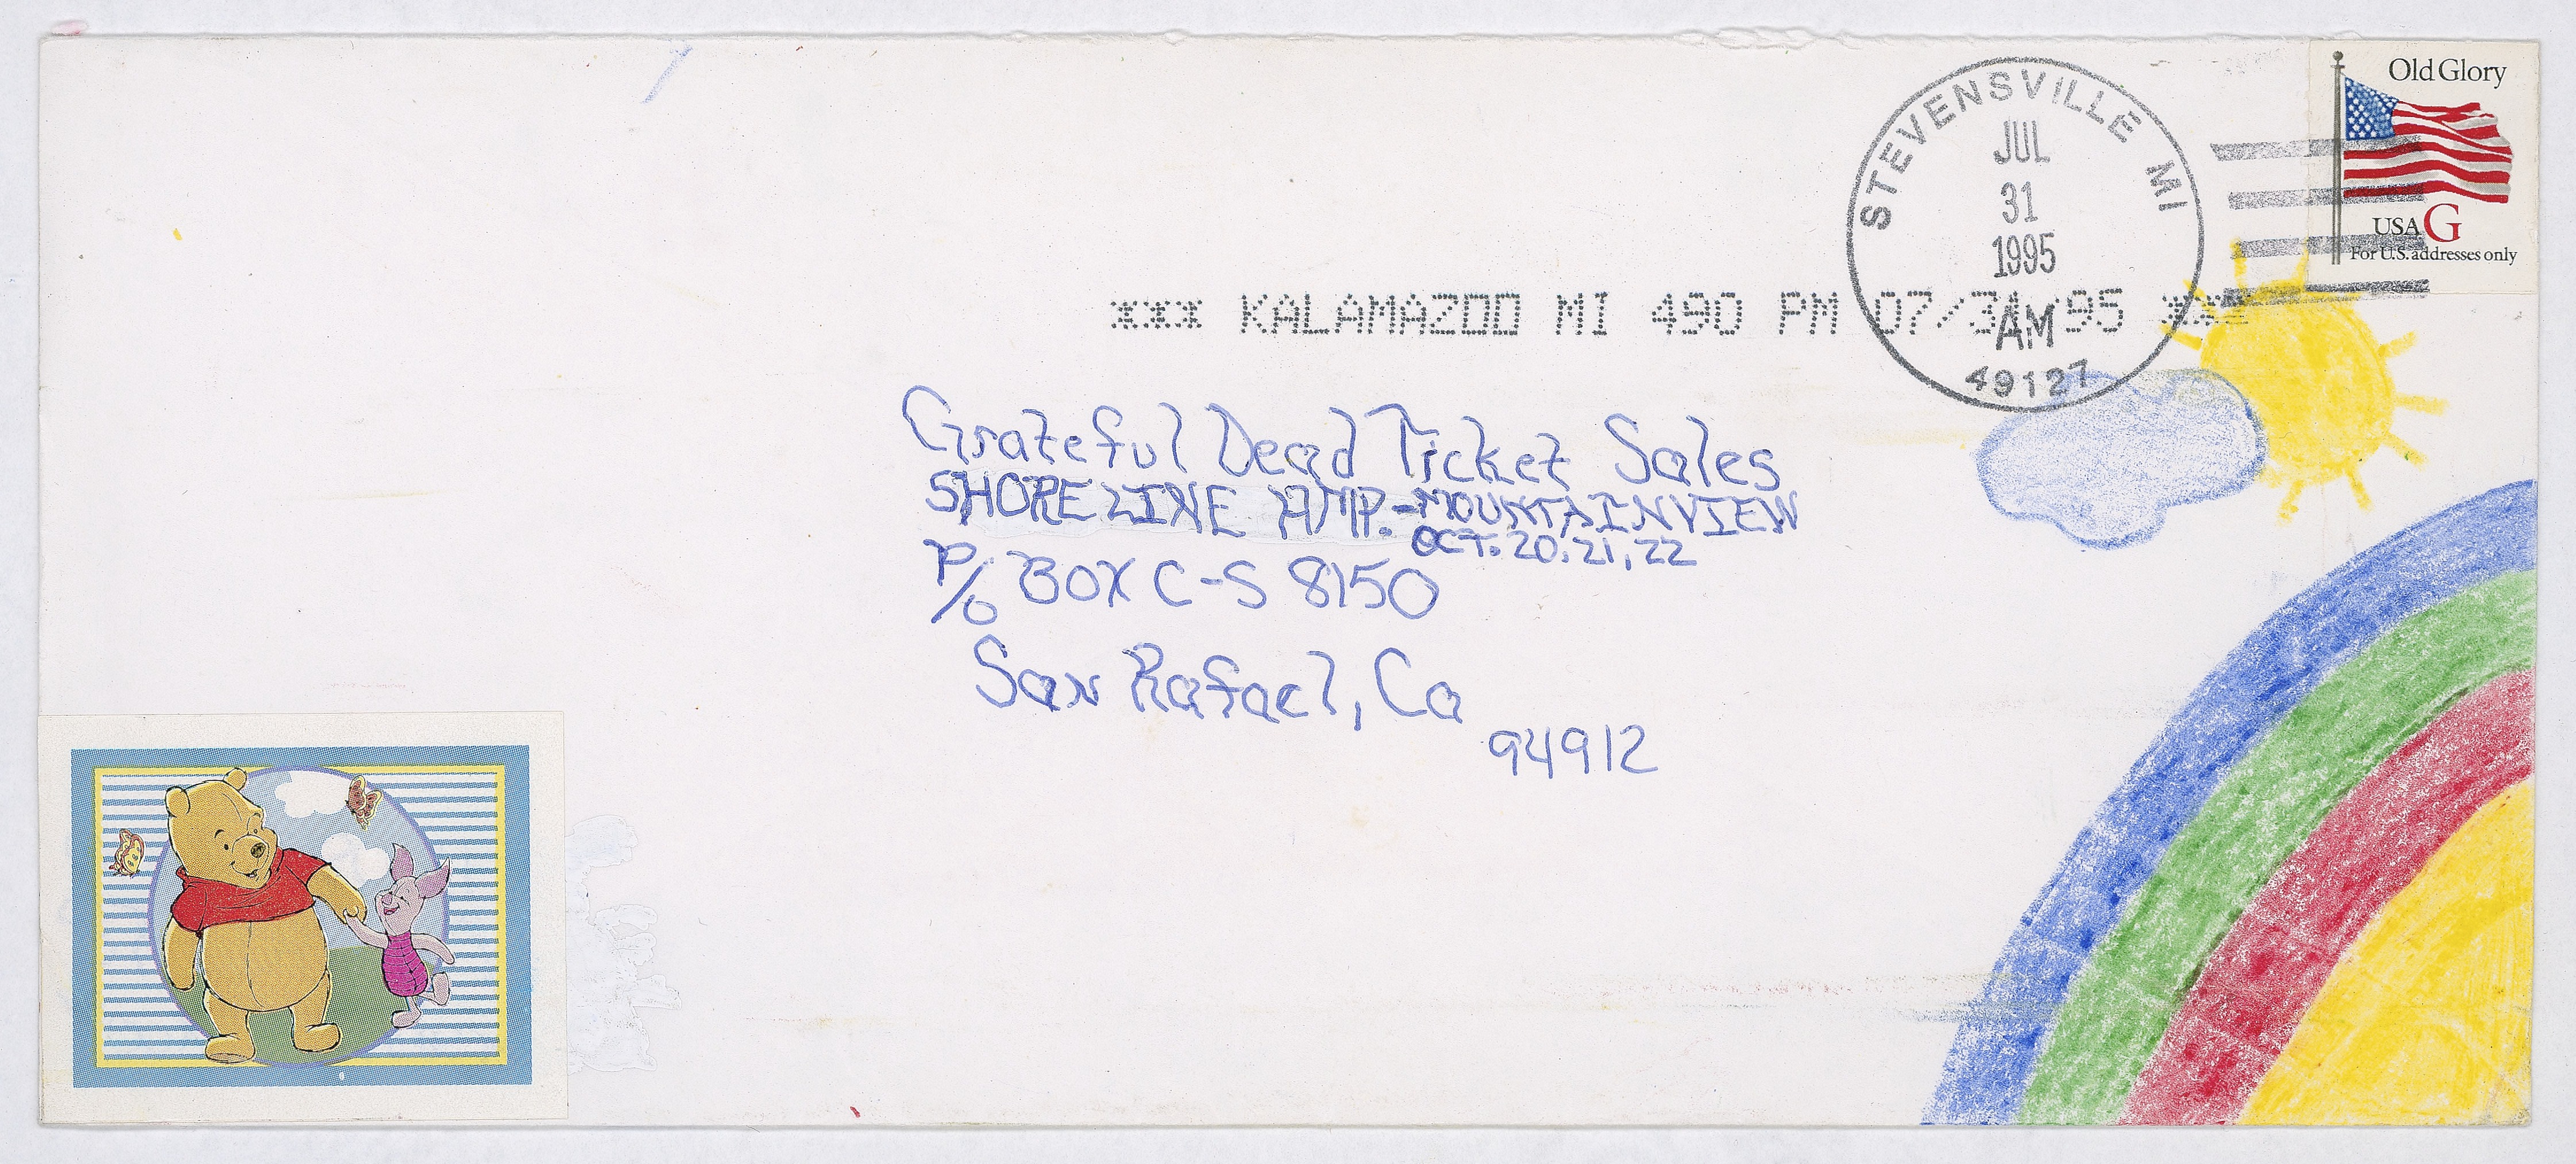 Old Glory
USA G
For U.S. addresses only
STEVENSVILLE MI
JUL
31
1995
AM
49127
*** KALAMAZOO MI 490 PM 07/31/95 ***
Grateful Dead Ticket Sales
SHORELINE AMP.-MOUNTAINVIEW
OCT. 20, 21, 22
P/O BOX C-S 8150
San Rafael, Ca
94912